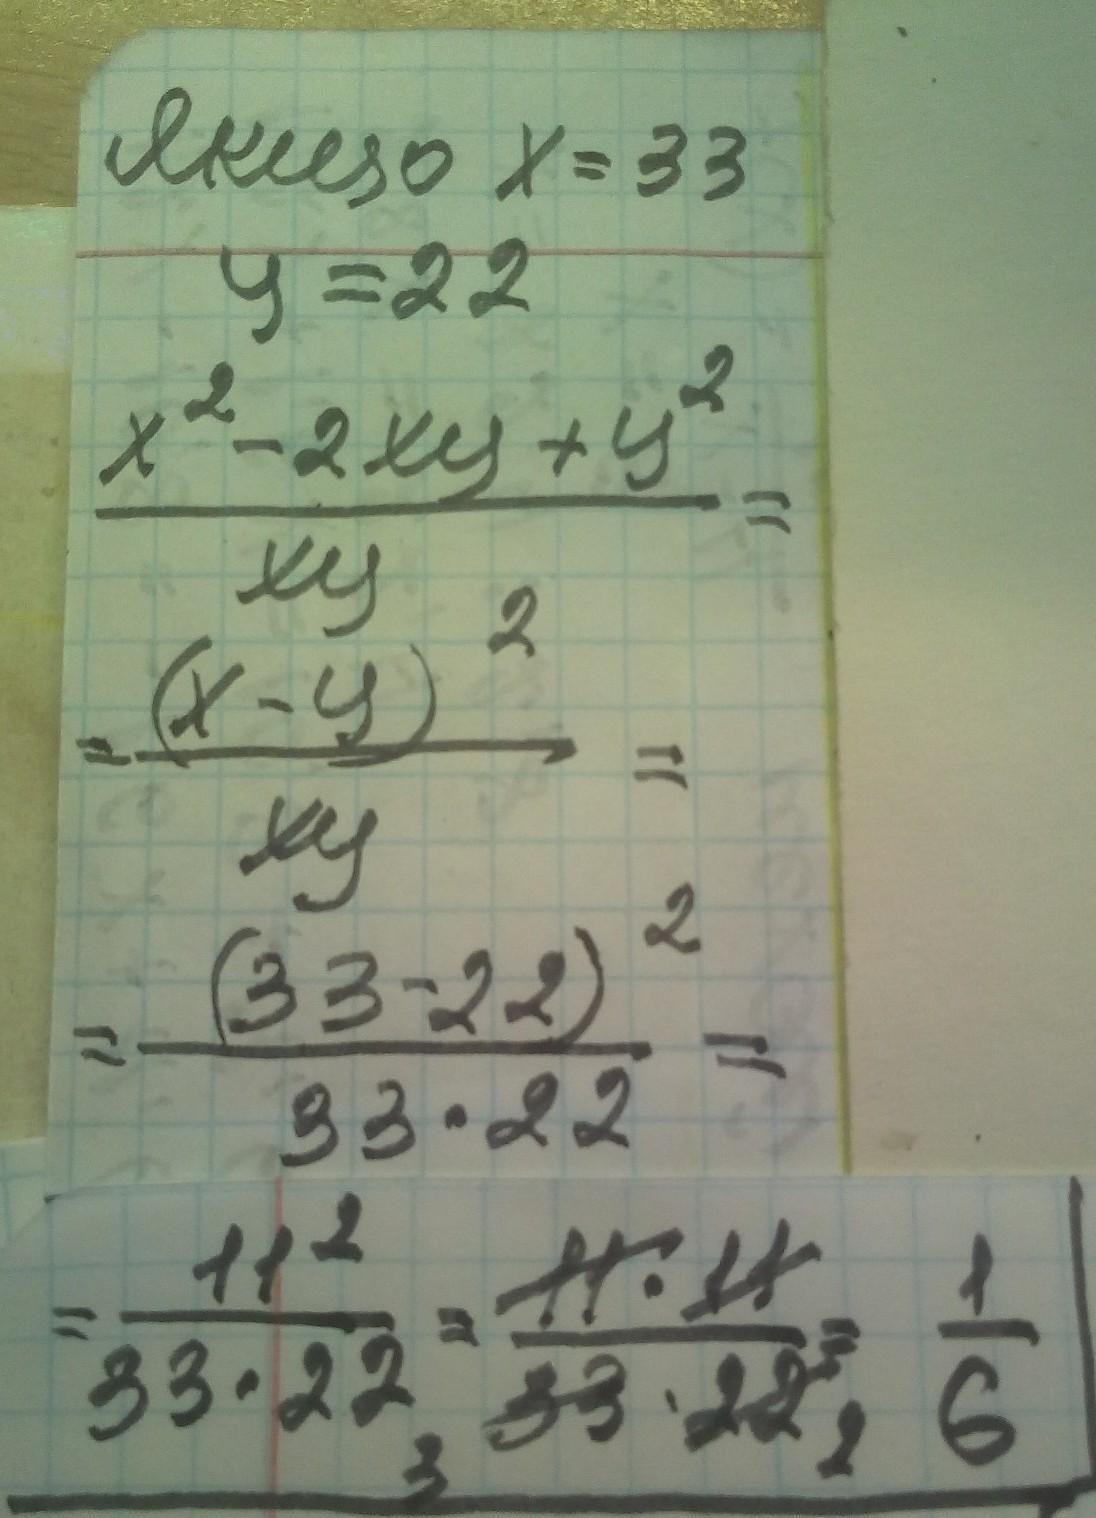 Якщо x = 33
y = 22
x² - 2xy + y²
=
xy
(x - y)²
= =
xy
(33 - 22)²
= =
33 · 22
11² 11 · 11 1
= = =
33 · 22 33 · 22 6
3 2